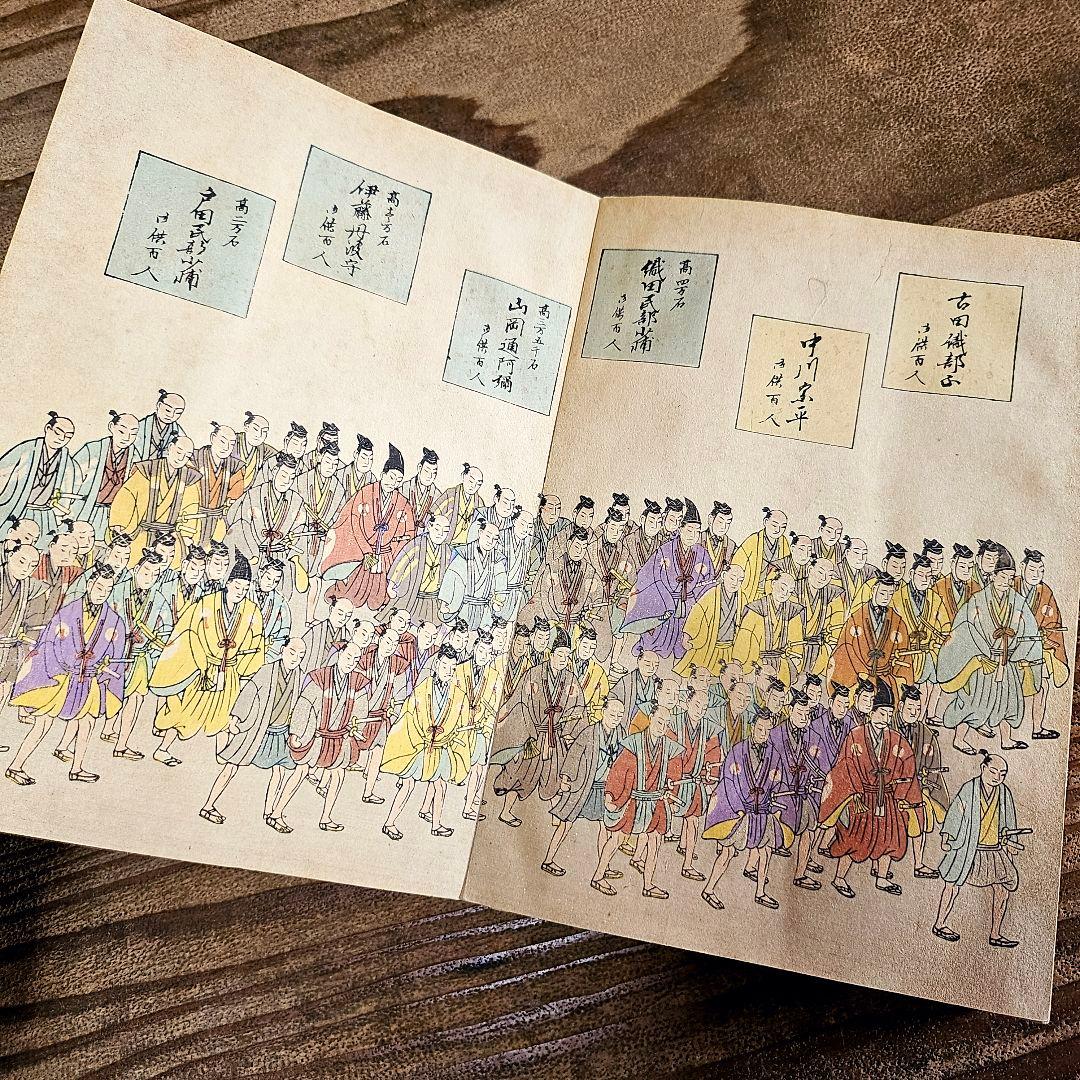 古田織部正
御供百人
中川宗平
御供百人
高四万石
織田民部少輔
御供百人
高二万五千石
山岡通阿彌
御供百人
高壱万石
伊藤丹波守
御供百人
高二万石
戸田民部少輔
御供百人